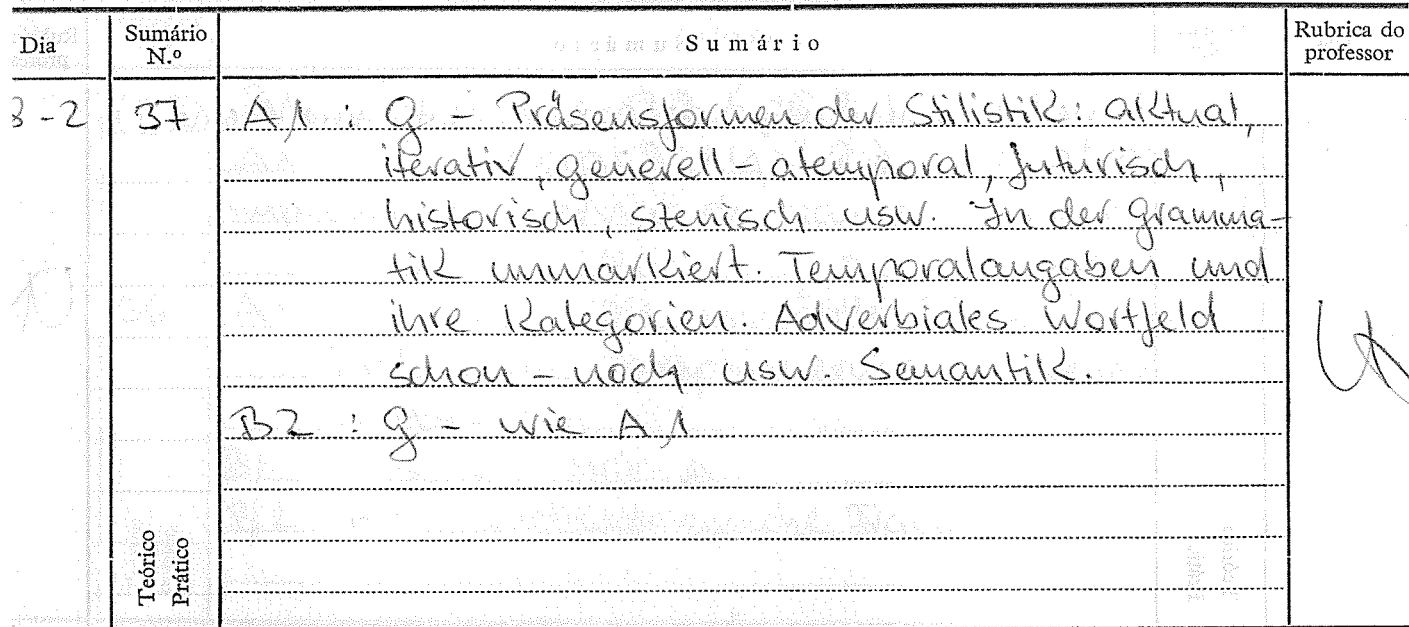 Dia
Sumário N.º
Sumário
Rubrica do professor
3-2 37 A1 : G - Präsensformen der Stilistik: aktual,
iterativ, generell-atemporal, futurisch,
historisch, szenisch usw. In der Gramma-
tik unmarkiert. Temporalangaben und
ihre Kategorien. Adverbiales Wortfeld
schon - noch usw. Semantik.
B2 : G - wie A1
Teórico
Prático